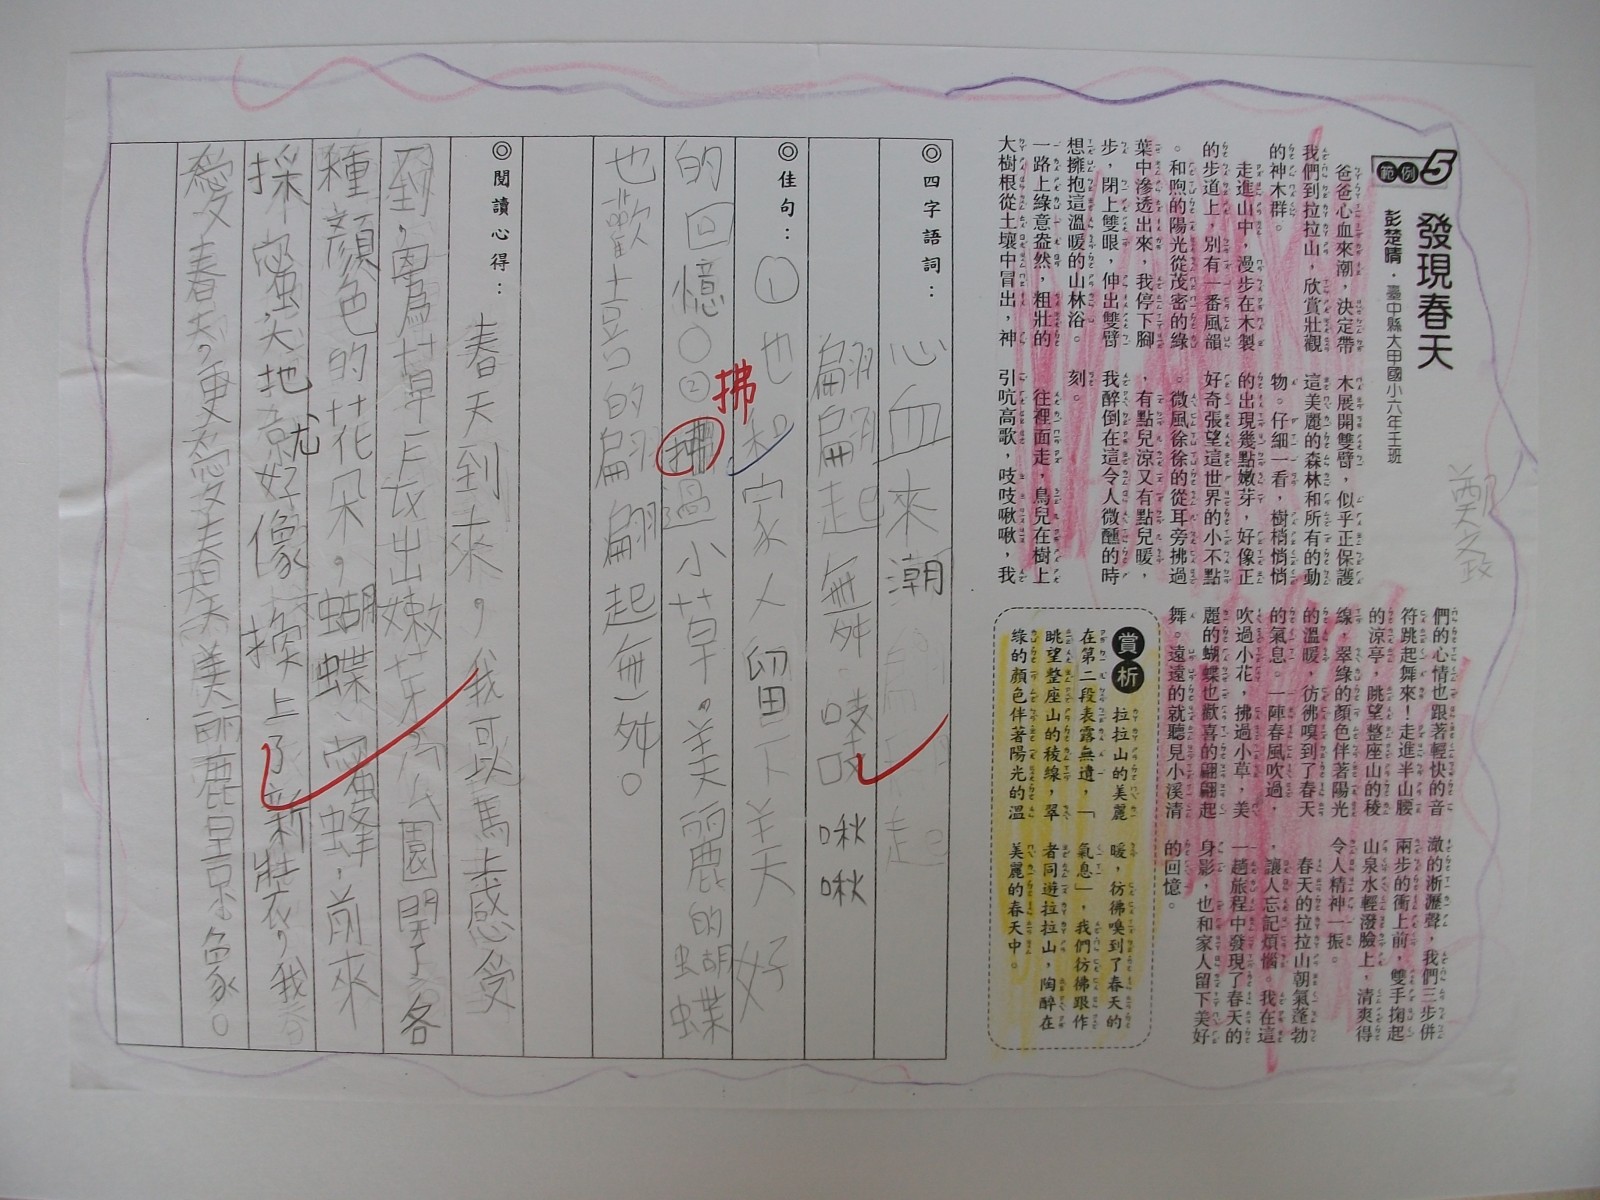 範例5
發現春天
彭楚晴・臺中縣大甲國小六年壬班
爸爸心血來潮,決定帶
我們到拉拉山,欣賞壯觀
的神木群。
走進山中,漫步在木製
的步道上,別有一番風韻
。和煦的陽光從茂密的綠
葉中滲透出來,我停下腳
步,閉上雙眼,伸出雙臂
想擁抱這溫暖的山林浴。
一路上綠意盎然,粗壯的
大樹根從土壤中冒出,神
木展開雙臂,似乎正保護
這美麗的森林和所有的動
物。仔細一看,樹梢悄悄
的出現幾點嫩芽,好像正
好奇張望這世界的小不點
。微風徐徐的從耳旁拂過
,有點兒涼又有點兒暖,
我醉倒在這令人微醺的時
刻。
往裡面走,鳥兒在樹上
引吭高歌,吱吱啾啾,我
們的心情也跟著輕快的音
符跳起舞來!走進半山腰
的涼亭,眺望整座山的稜
線,翠綠的顏色伴著陽光
的溫暖,彷彿嗅到了春天
的氣息。一陣春風吹過,
吹過小花,拂過小草,美
麗的蝴蝶也歡喜的翩翩起
舞。遠遠的就聽見小溪清
澈的淅瀝聲,我們三步併
兩步的衝上前,雙手掬起
山泉水輕潑臉上,清爽得
令人精神一振。
春天的拉拉山朝氣蓬勃
,讓人忘記煩惱。我在這
一趟旅程中發現了春天的
身影,也和家人留下美好
的回憶。
賞析
拉拉山的美麗
在第二段表露無遺,「
眺望整座山的稜線,翠
綠的顏色伴著陽光的溫
暖,彷彿嗅到了春天的
氣息」,我們彷彿跟作
者同遊拉拉山,陶醉在
美麗的春天中。
◎四字語詞:
心血來潮
翩翩起舞、吱吱啾啾
◎佳句:①也和家人留下美好
的回憶。②拂過小草。美麗的蝴蝶
拂
也歡喜的翩翩起舞。
◎閱讀心得:
春天到來,我可以馬上感受
到,嫩芽,公園開了各
種顏色的花朵。蝴蝶、蜜蜂,前來
採蜜,大地就好像換上了新裝,我
愛春天,更愛春天美麗景象。